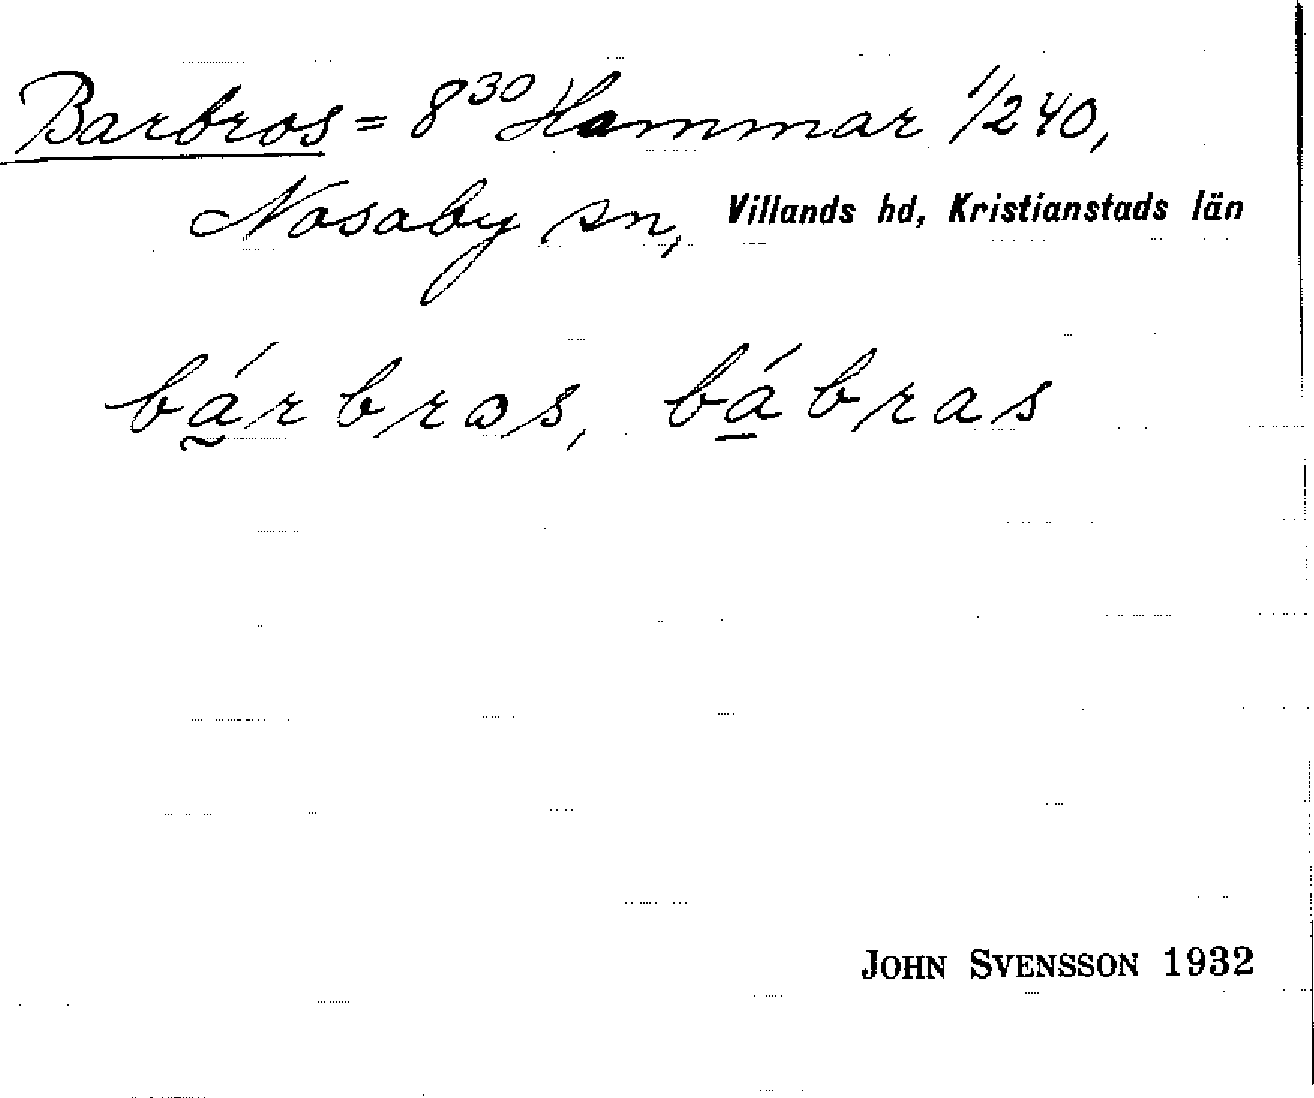 Barbros = 8³⁰ Hammar 1/2 40,
Nosaby sn, Villands hd, Kristianstads län
bá̰rbrɷs, bá̱bras
JOHN SVENSSON 1932